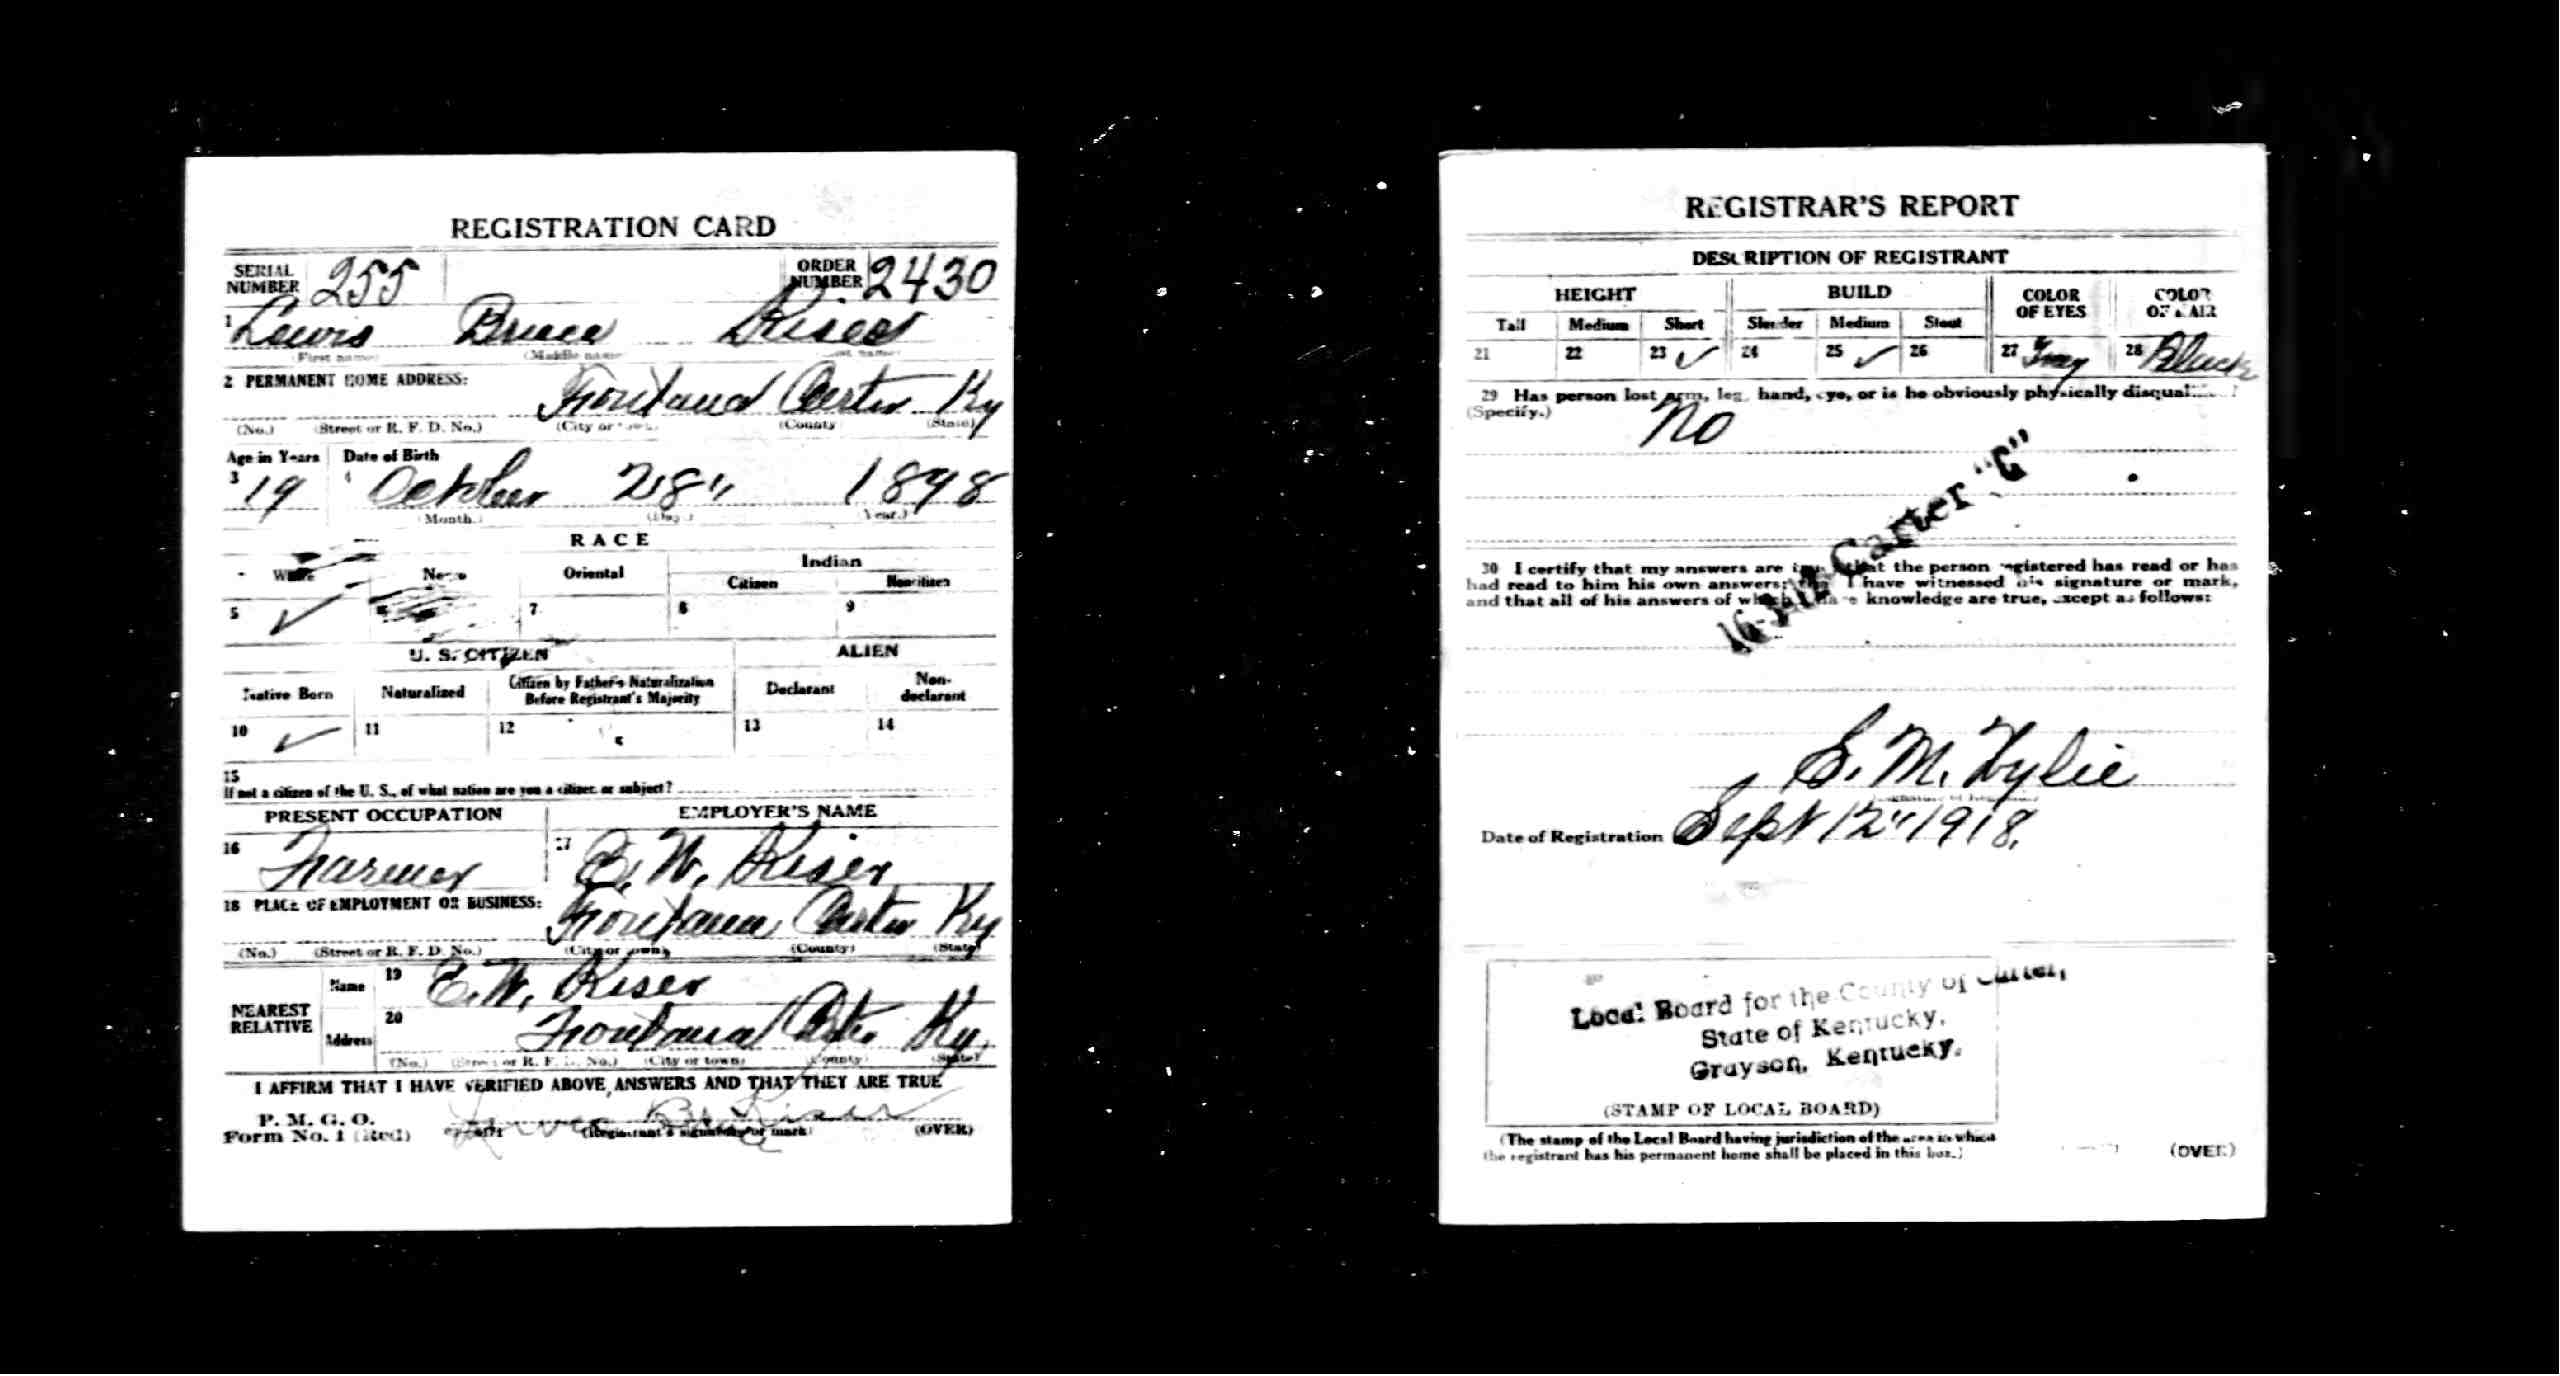 REGISTRATION CARD
SERIAL NUMBER 255 ORDER NUMBER 2430
1 Lewis Bruce Kiser
(First name) (Middle name) (Last name)
2 PERMANENT HOME ADDRESS:
Fontana Carter Ky
(No.) (Street or R. F. D. No.) (City or town) (County) (State)
Age in Years Date of Birth
3 19 4 October 28" 1898
(Month.) (Day.) (Year.)
RACE
White Negro Oriental Indian
Citizen Noncitizen
5 ✓ 7 8 9
U. S. CITIZEN ALIEN
Native Born Naturalized Citizen by Father's Naturalization Before Registrant's Majority Declarant Non-declarant
10 ✓ 11 12 13 14
15
If not a citizen of the U. S., of what nation are you a citizen or subject?
PRESENT OCCUPATION EMPLOYER'S NAME
16 Farmer 17 E. W. Kiser
18 PLACE OF EMPLOYMENT OR BUSINESS:
Fontana Carter Ky
(No.) (Street or R. F. D. No.) (City or town) (County) (State)
NEAREST RELATIVE
Name 19 E. W. Kiser
Address 20 Fontana Carter Ky.
(No.) (Street or R. F. D. No.) (City or town) (County) (State)
I AFFIRM THAT I HAVE VERIFIED ABOVE ANSWERS AND THAT THEY ARE TRUE
P. M. G. O.
Form No. 1 (Red) (Registrant's signature or mark) (OVER)
REGISTRAR'S REPORT
DESCRIPTION OF REGISTRANT
HEIGHT BUILD COLOR OF EYES COLOR OF HAIR
Tall Medium Short Slender Medium Stout
21 22 23 ✓ 24 25 ✓ 26 27 Gray 28 Black
29 Has person lost arm, leg, hand, eye, or is he obviously physically disqualified?
(Specify.) No
30 I certify that my answers are true; that the person registered has read or has
had read to him his own answers; that I have witnessed his signature or mark,
and that all of his answers of which I have knowledge are true, except as follows:
Carter "C"
S. M. Wylie
Date of Registration Sept 12" 1918.
Local Board for the County of Carter,
State of Kentucky,
Grayson, Kentucky.
(STAMP OF LOCAL BOARD)
(The stamp of the Local Board having jurisdiction of the area in which
the registrant has his permanent home shall be placed in this box.)
(OVER)